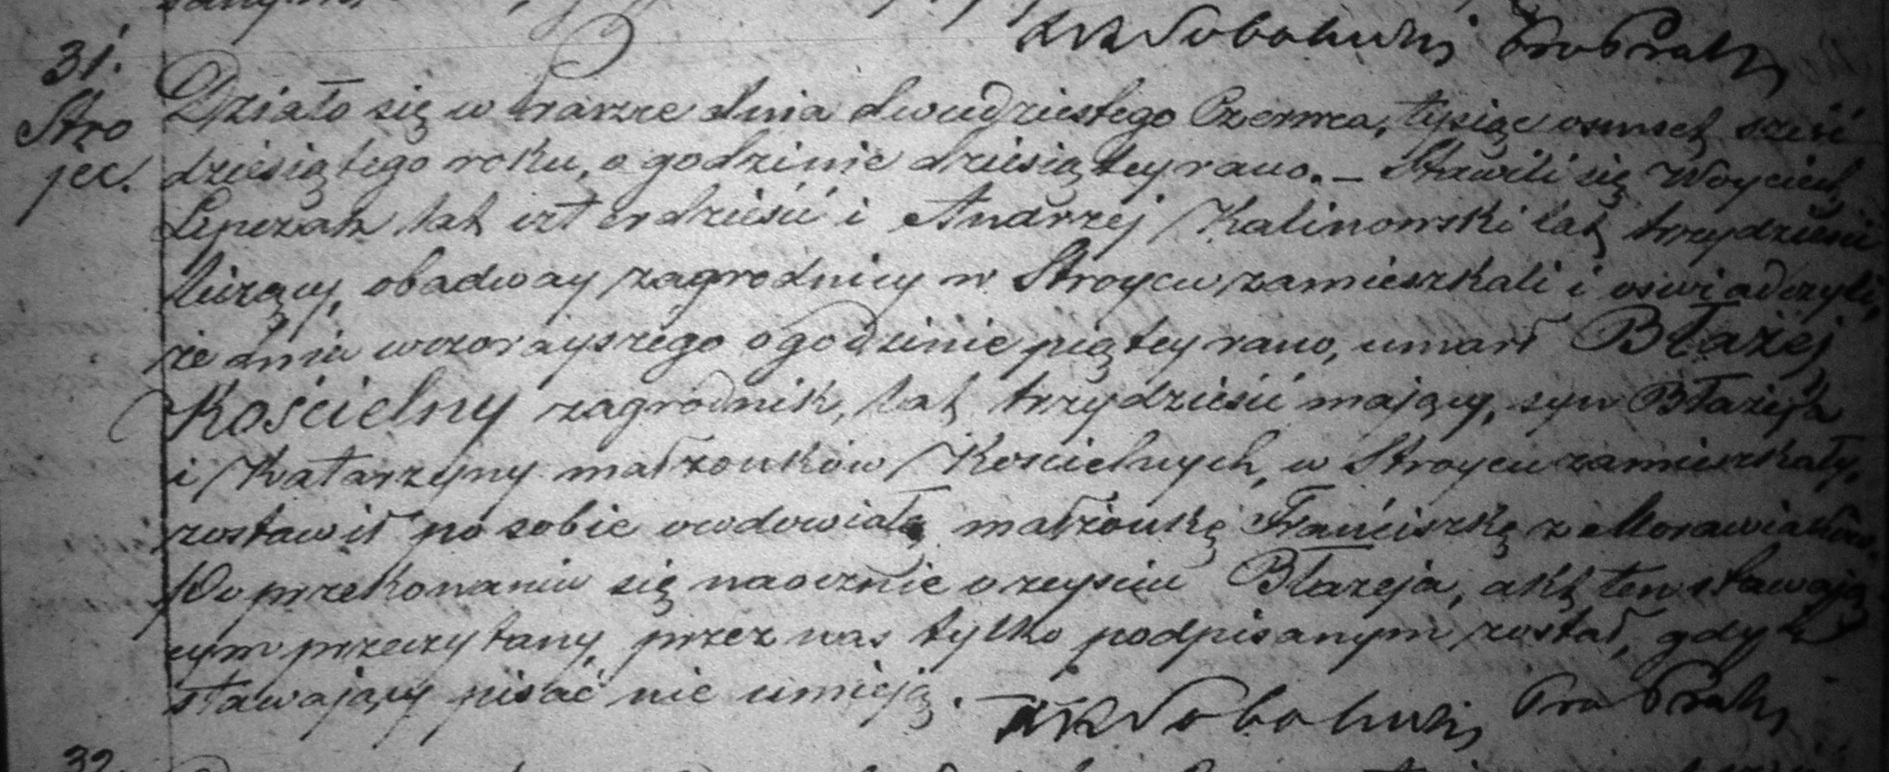 31.
Stro
jec.
Działo się w Praszce dnia dwudziestego Czerwca, tysiąc osmset sześć
dziesiątego roku, o godzinie dziesiątey rano. – Stawili się Woyciech
Lepczak lat czterdzieści i Andrzej Kalinowski lat trzydzieści
liczący, obadway zagrodnicy w Stroycu zamieszkali i oswiadczyli,
że dnia wczorayszego o godzinie piątey rano, umarł Błażej
Kościelny zagrodnik, lat trzydzieści mający, syn Błażeja
i Katarzyny małżonków Kościelnych, w Stroycu zamieszkały,
zostawił po sobie owdowiałą małżonkę Franciszkę z Morawiaków.
Po przekonaniu się naocznie o zeysciu Błażeja, akt ten stawają
cym przeczytany, przez nas tylko podpisanym został, gdyż
stawający pisać nie umieją.
32.